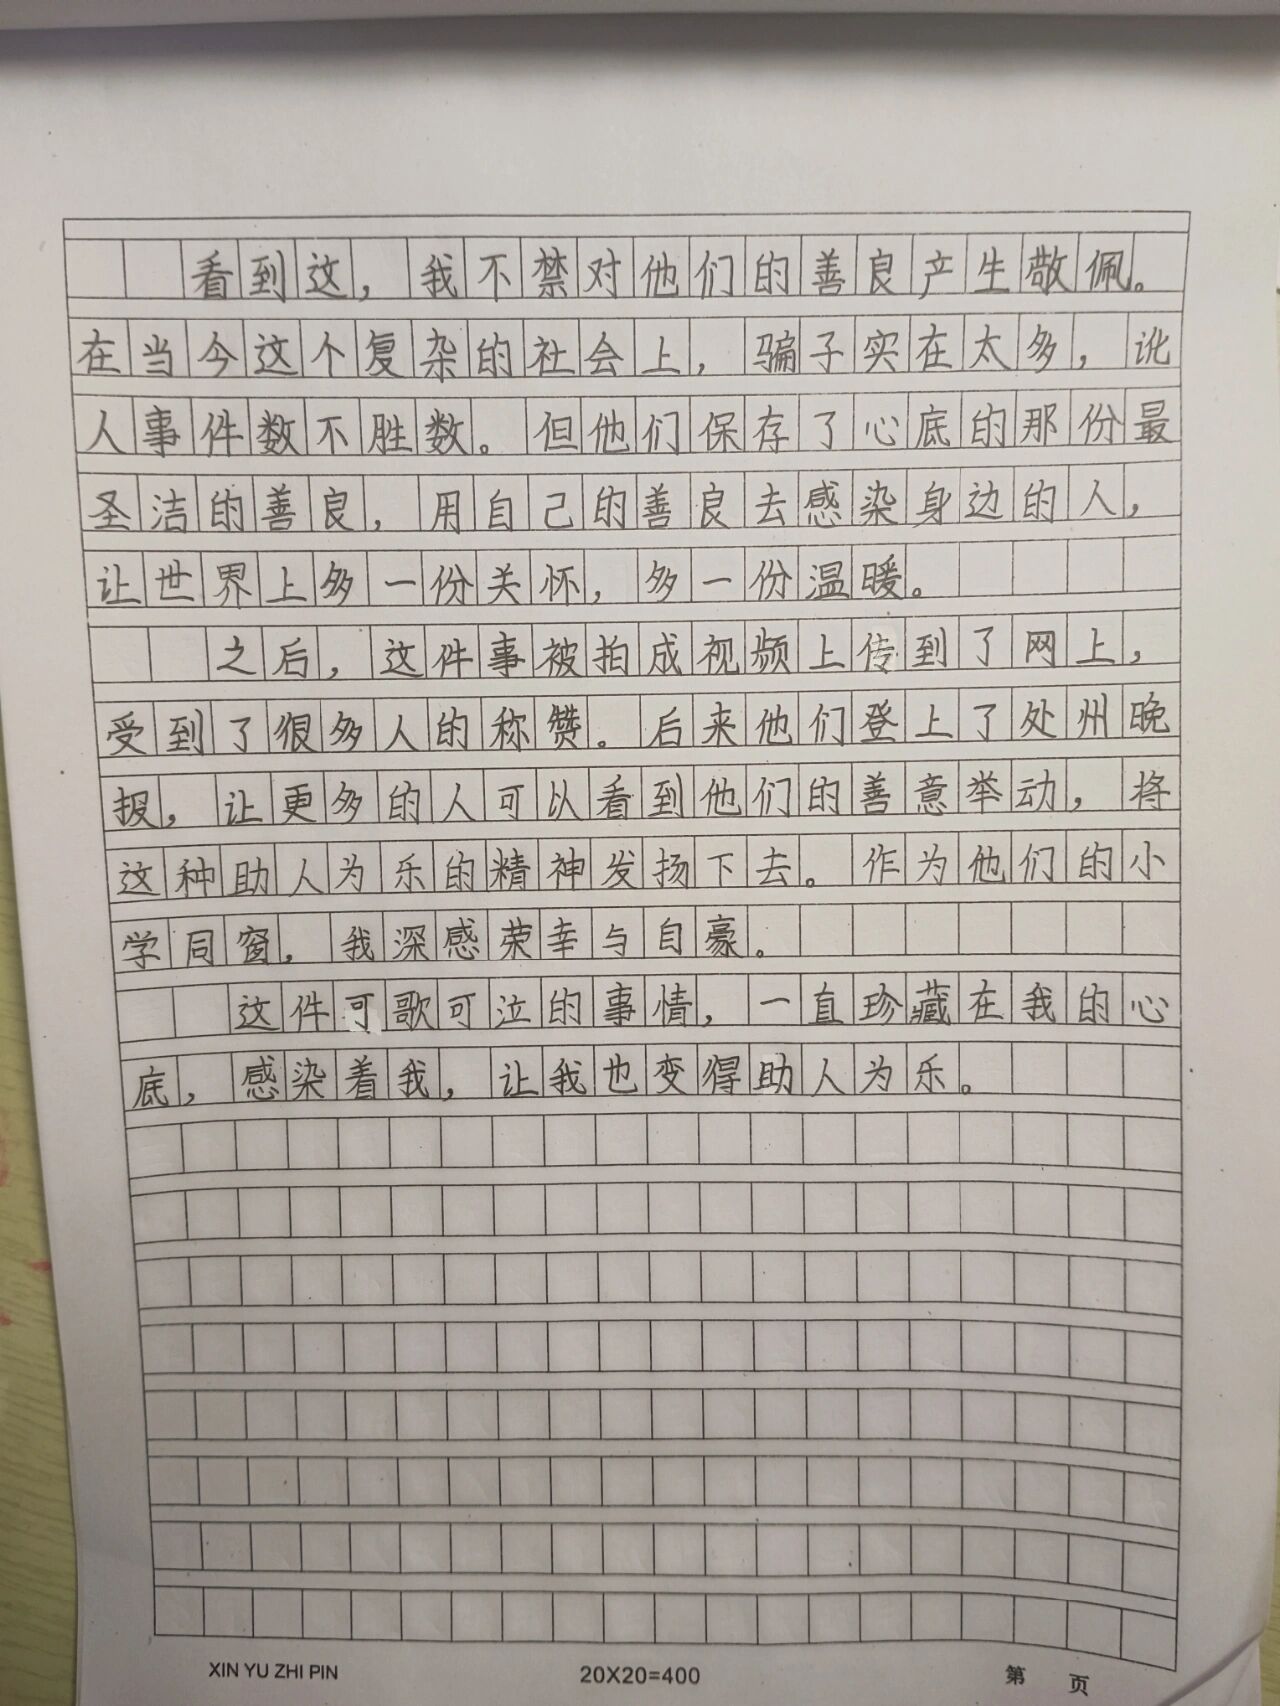 看到这，我不禁对他们的善良产生敬佩。
在当今这个复杂的社会上，骗子实在太多，讹
人事件数不胜数。但他们保存了心底的那份最
圣洁的善良，用自己的善良去感染身边的人，
让世界上多一份关怀，多一份温暖。
之后，这件事被拍成视频上传到了网上，
受到了很多人的称赞。后来他们登上了处州晚
报，让更多的人可以看到他们的善意举动，将
这种助人为乐的精神发扬下去。作为他们的小
学同窗，我深感荣幸与自豪。
这件可歌可泣的事情，一直珍藏在我的心
底，感染着我，让我也变得助人为乐。
XIN YU ZHI PIN 20X20=400 第 页